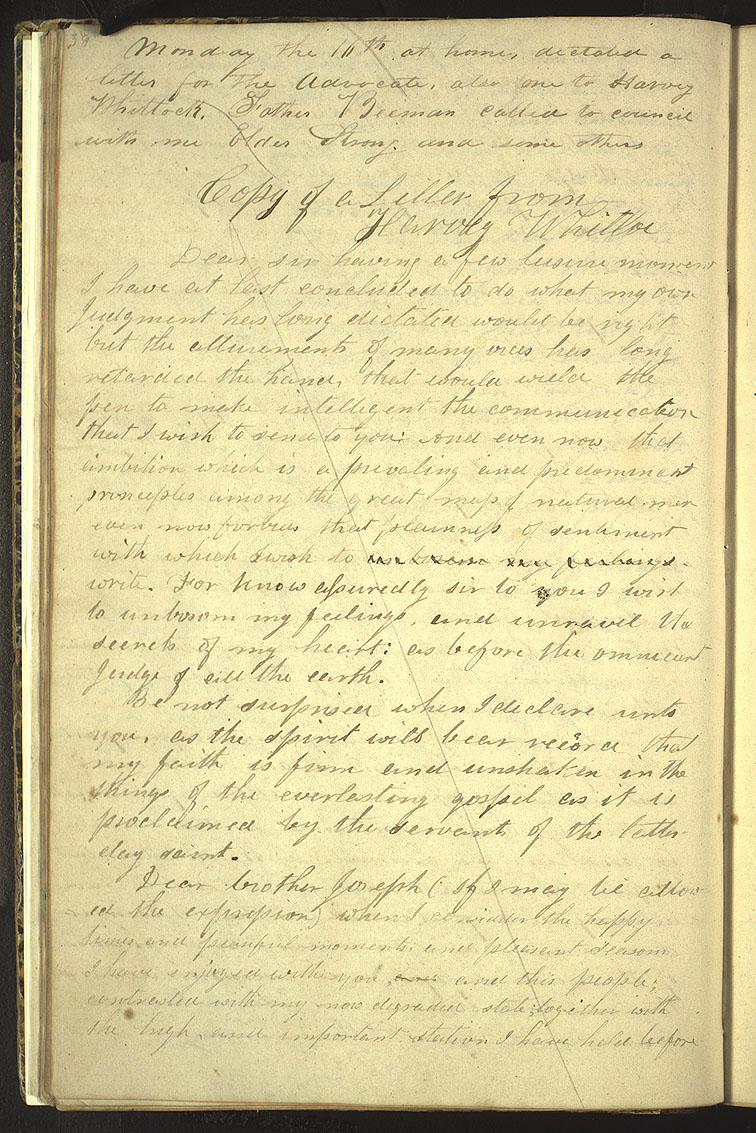 38
Monday the 16th at home, dictated a
letter for the Advocate, also one to Harvey
Whitlock. Father Beeman called to council
with me Elder Strong and some others
Copy of a Letter from
Harvey Whitloc
Dear sir having a few leisure moments
I have at last concluded to do what my own
Judgment has long dictated would be right
but the allurements of many vices has long
retarded the hand, that would wield the
pen to make intelligent the communication
that I wish to send to you: And even now that
ambition which is a prevaling and predominent
principles among the great mass of natural men
even now forbids that plainness of sentiment
with which I wish to unbosom my feelings
write. For know assuredly sir to you I wish
to unbosom my feelings, and unravil the
secrets of my heart: as before the omnicient
Judge of all the earth.
Be not surprised when I declare unto
you, as the spirit will bear record that
my faith is firm and unshaken in the
things of the everlasting gospel as it is
proclaimed by the servants of the latter-
day saint.
Dear brother Joseph (If I may be allow-
ed the expression) when I considder the happy
times and peaseful moments, and pleasant seasons
I have enjoyed with you, and and this people;
contrasted with my now degraded state; together with
the high, and important station I have held before